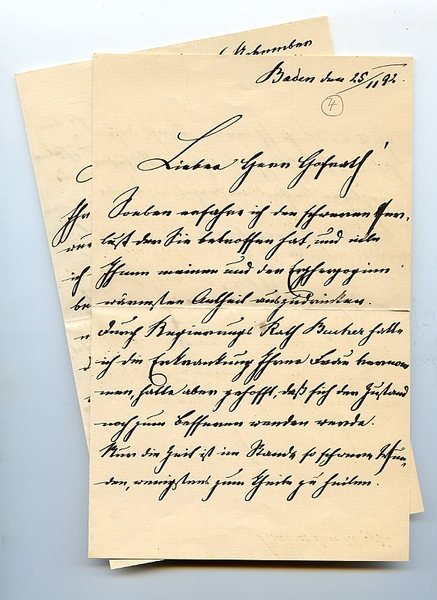 Baden den 25/11 92.
4
Lieber Herr Hofrath!
Soeben erfahre ich den schweren Ver-
lust den Sie betroffen hat, und eile
Ihnen meinen und der Erzherzogin
wärmsten Antheil auszudrücken.
Durch Regierungs Rath Becker hatte
ich die Erkrankung Ihrer Frau vernom-
men, hatte aber gehofft, daß sich der Zustand
noch zum Besseren wenden werde.
Nur die Zeit ist im Stande so schwere Wun-
den, wenigstens zum Theile zu heilen.